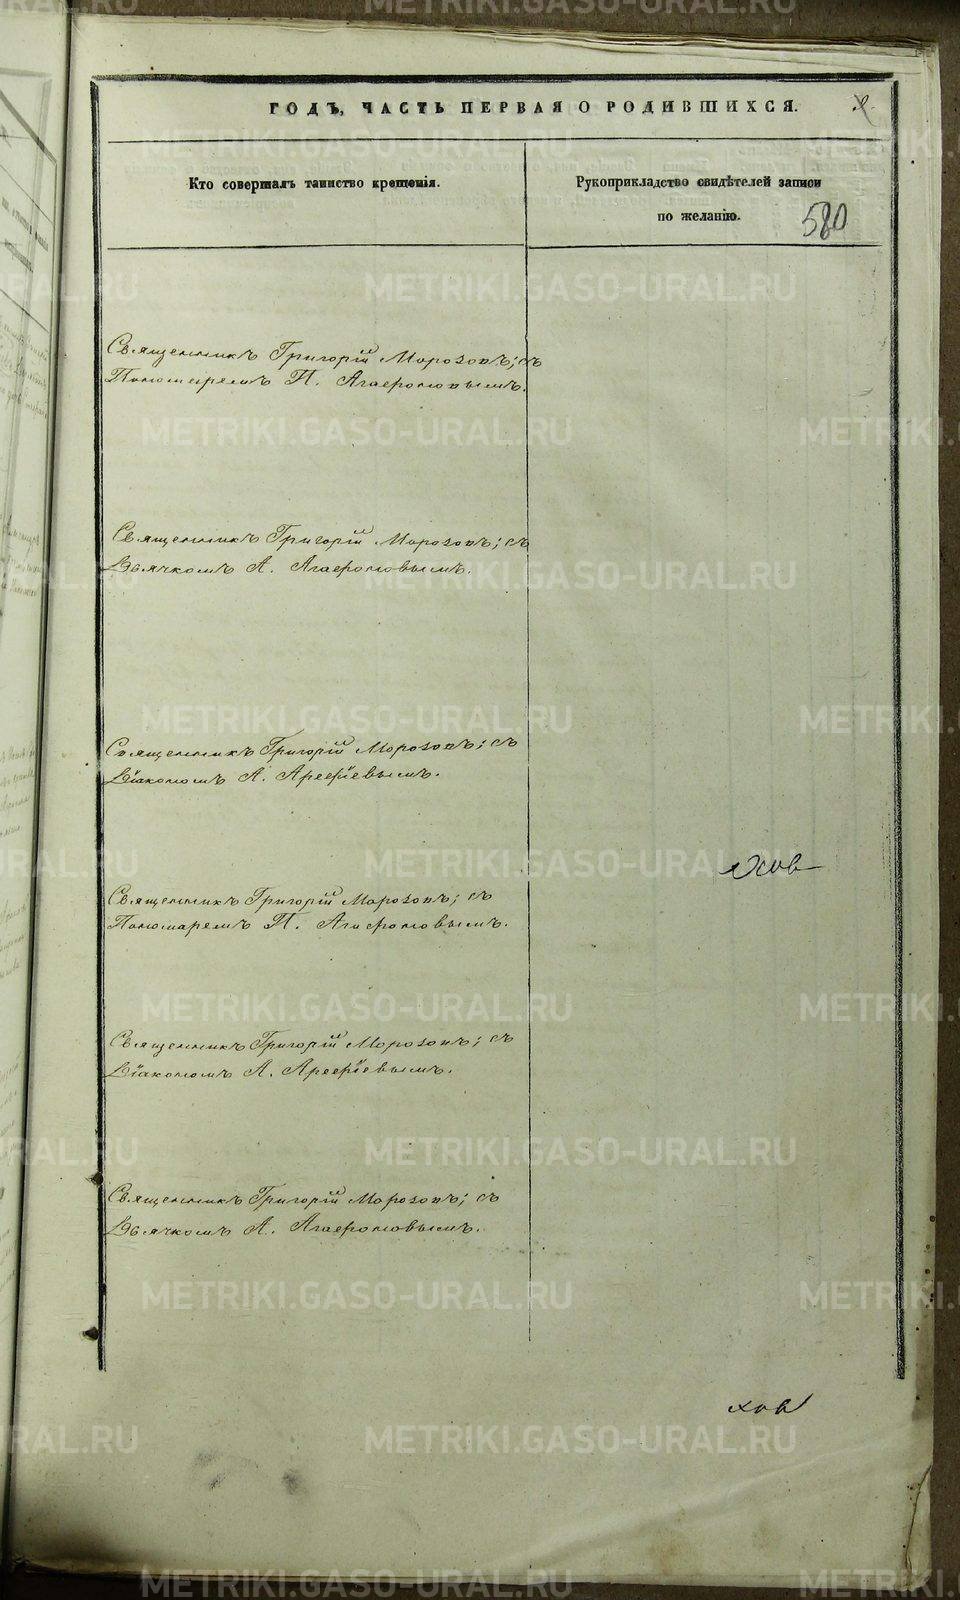 ГОДЪ, ЧАСТЬ ПЕРВАЯ О РОДИВШИХСЯ.
Кто совершалъ таинство крещенія.
Рукоприкладство свидѣтелей записи
по желанію.
580
Священникъ Григорій Морозовъ; съ
Пономаремъ П. Агафоновымъ.
Священникъ Григорій Морозовъ; съ
Дьячкомъ А. Агафоновымъ.
Священникъ Григорій Морозовъ; съ
Діакономъ А. Арефіевымъ.
Священникъ Григорій Морозовъ; съ
Пономаремъ П. Агафоновымъ.
Священникъ Григорій Морозовъ; съ
Діакономъ А. Арефіевымъ.
Священникъ Григорій Морозовъ; съ
Дьячкомъ А. Агафоновымъ.
METRIKI.GASO-URAL.RU